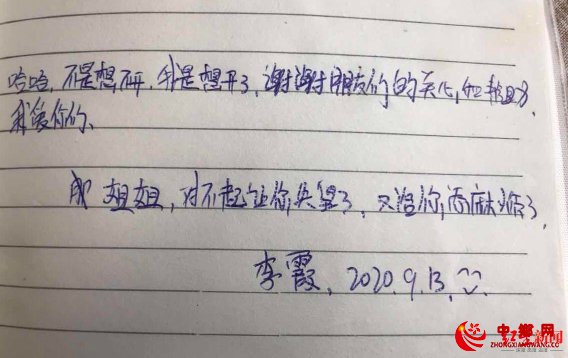 哈哈，不是想不开，我是想开了，谢谢朋友们的关心，和帮助，
我爱你们、
成 姐姐，对不起让你失望了，又给你添麻烦了，
李霞，2020.9.13.
新闻
中鄉网
ZHONGXIANGWANG.CC